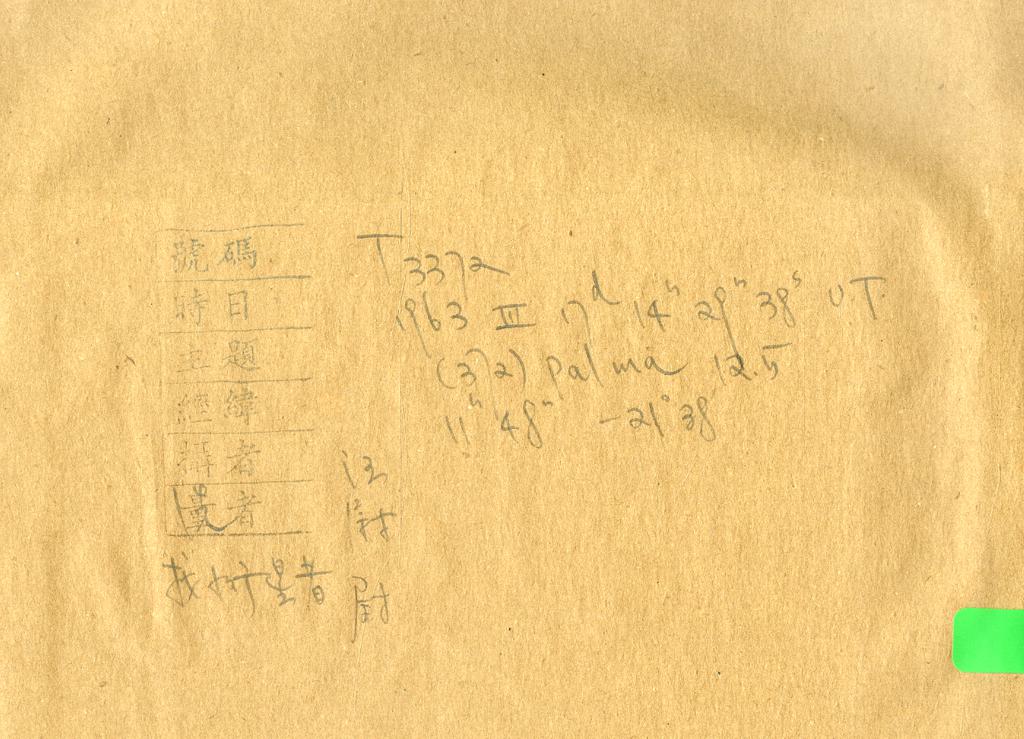 號碼 T 3372
時日 1963 III 17ᵈ 14ʰ 29ᵐ 38ˢ UT
主題 (372) Palma 12.5
經緯 11ʰ 48ᵐ -21° 38'
攝者 汪
量者
找小行星者 尉